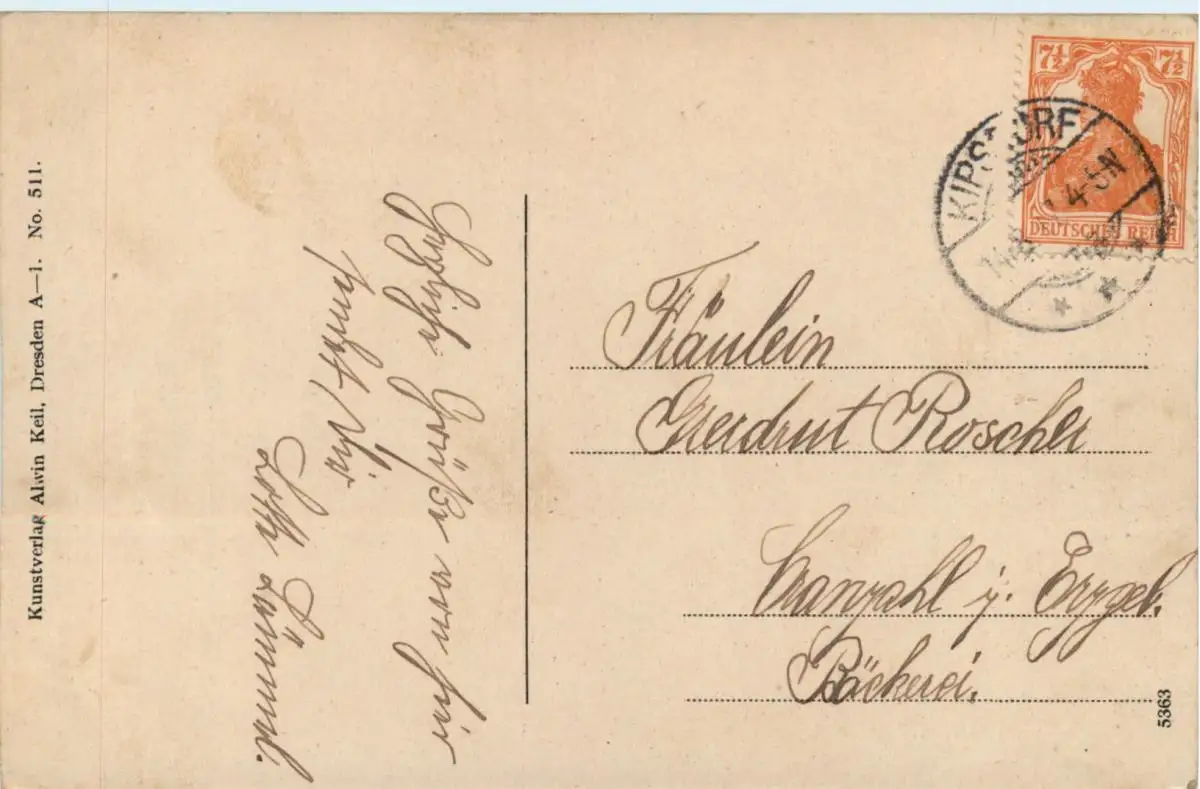 Kunstverlag Alwin Keil, Dresden A—1. No. 511.
Herzliche Grüße von hier
sendet Dir
Lotte Lämmel.
7½ 7½
DEUTSCHES REICH
KIPSDORF
4-5N
Fräulein
Gerdrut Roscher
Cranzahl i. Erzgeb.
Bäckerei.
5363